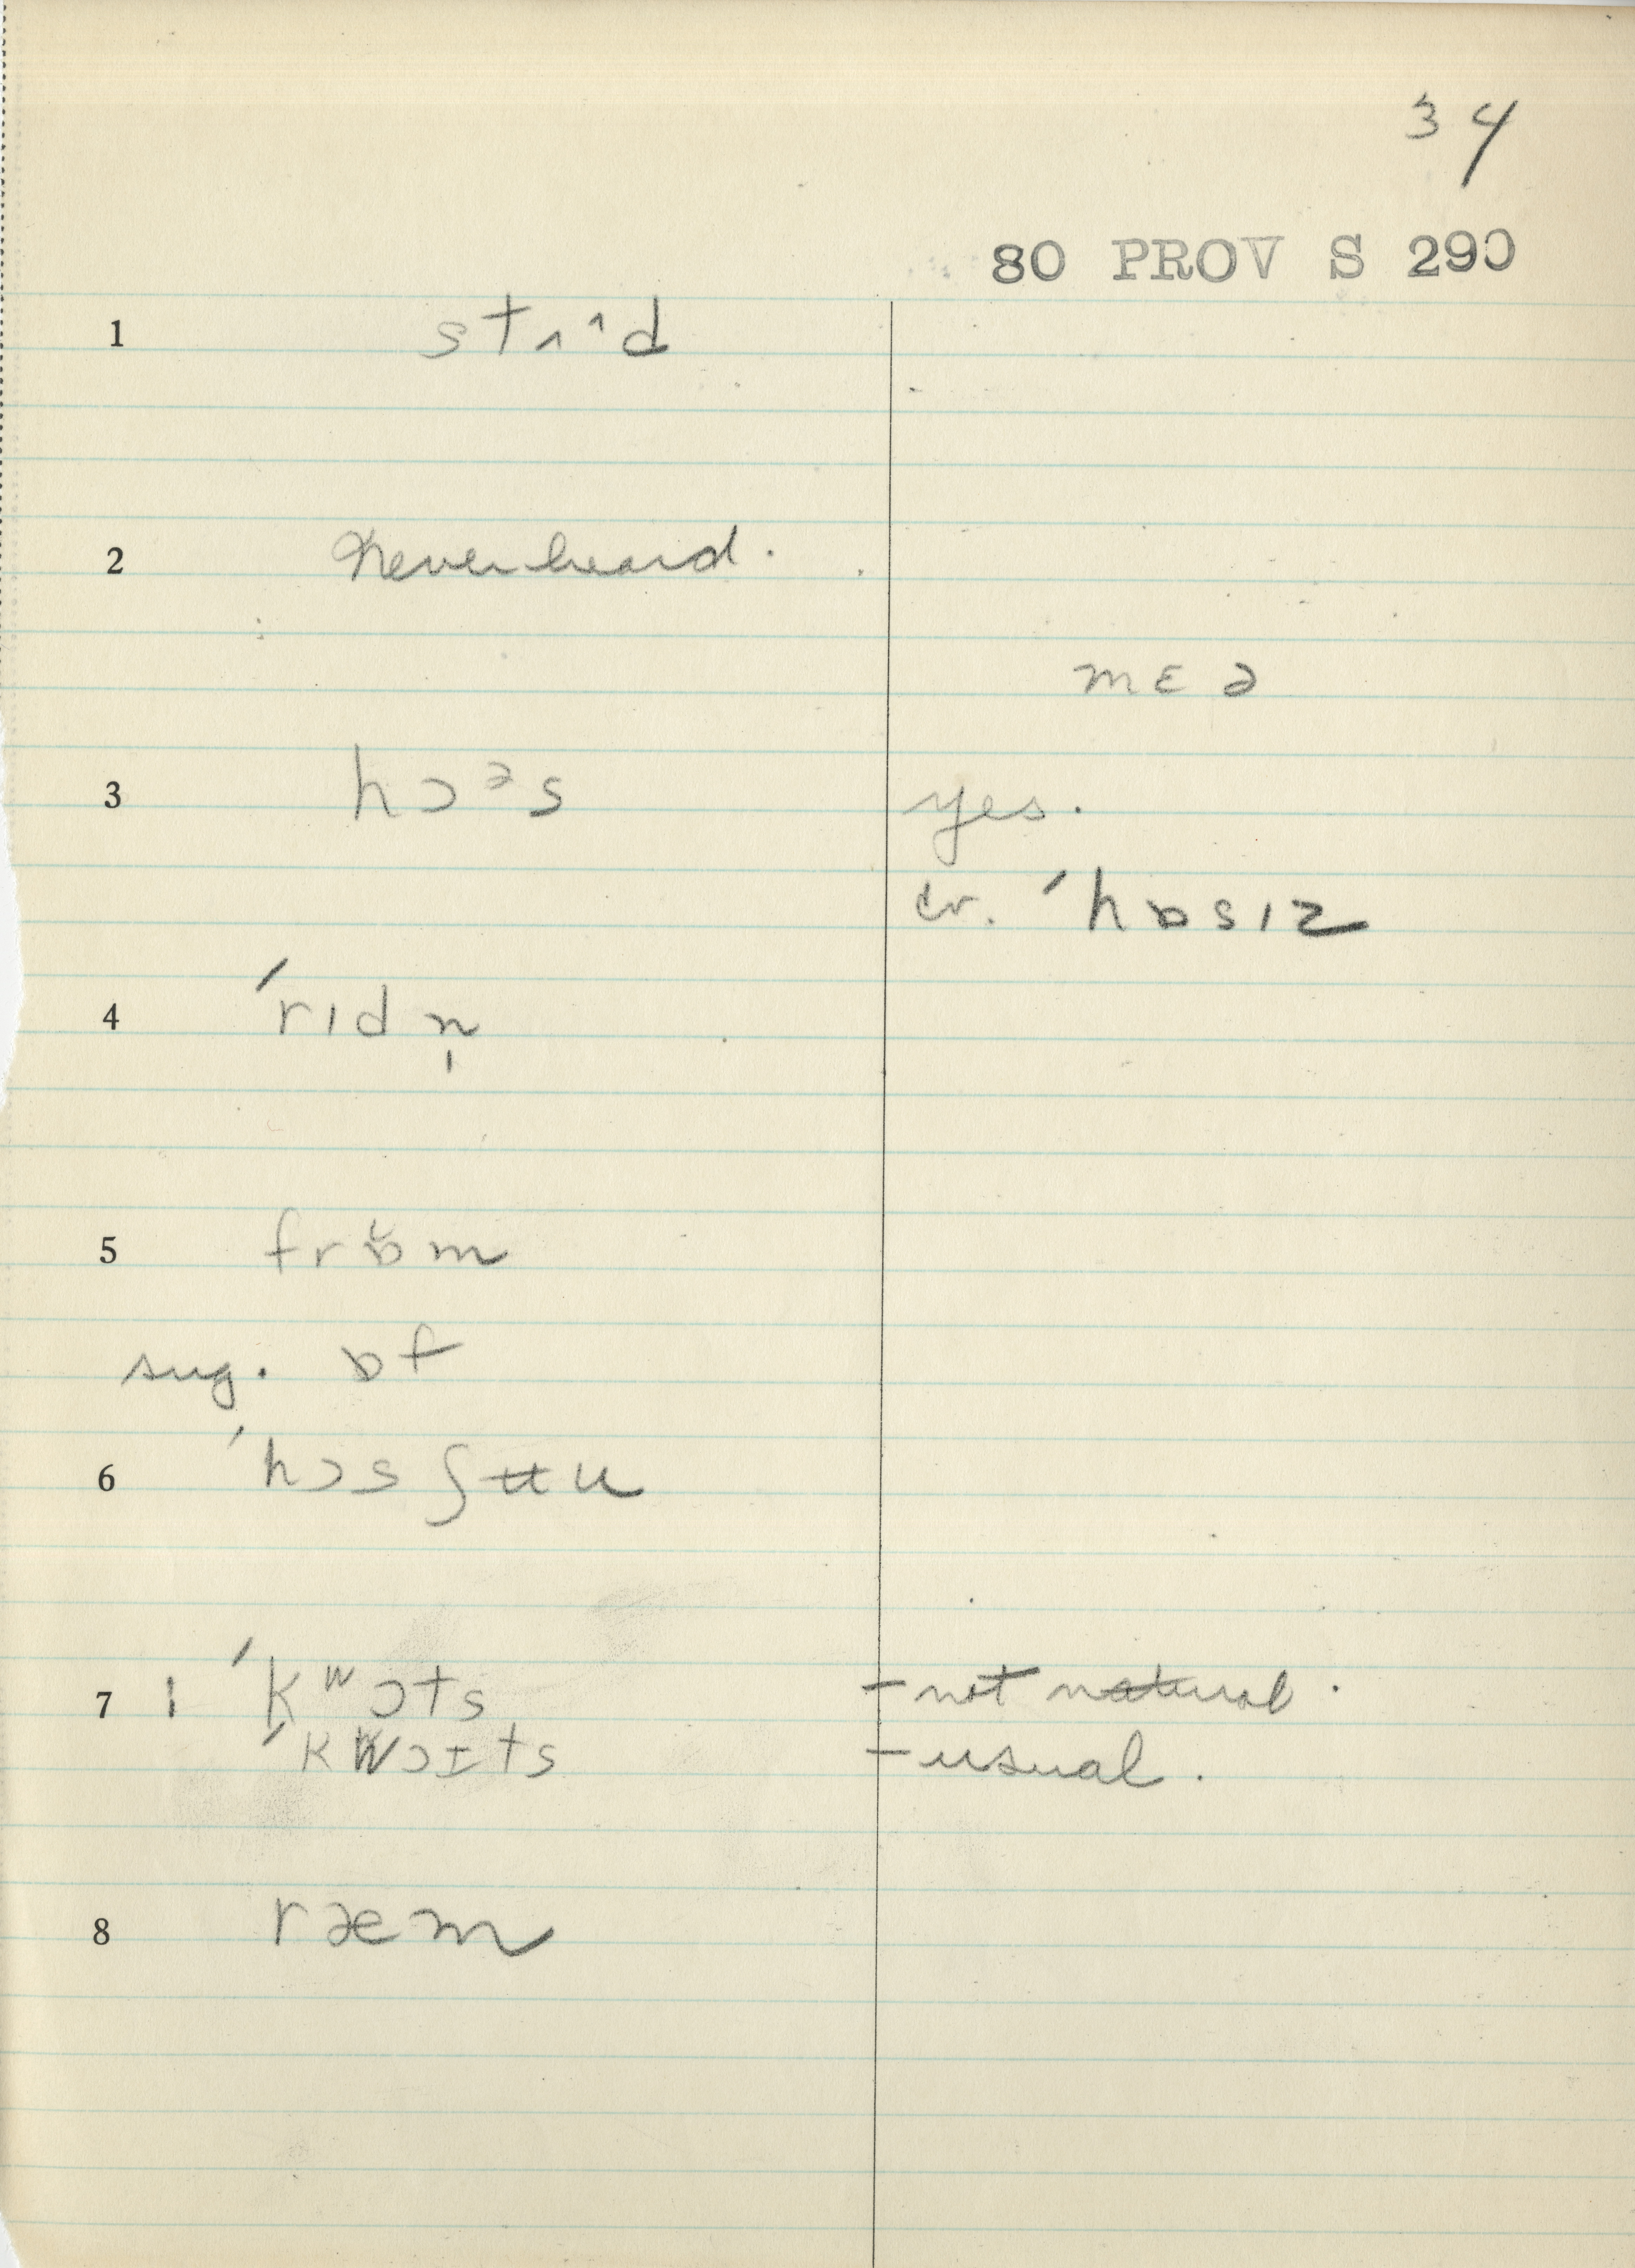 34
80 PROV S 290
1 stʌᶺd
2 Never heard.
mɛ ə
3 hɔᵊs yes.
cr. ˈhɒsɪz
4 ˈrɪdn̩
5 frɒ̆m
sug. ɒf
6 ˈhɔsʃʉu
7 | ˈkʷɔts – not natural.
ˈkwɔɪts – usual.
8 ræm